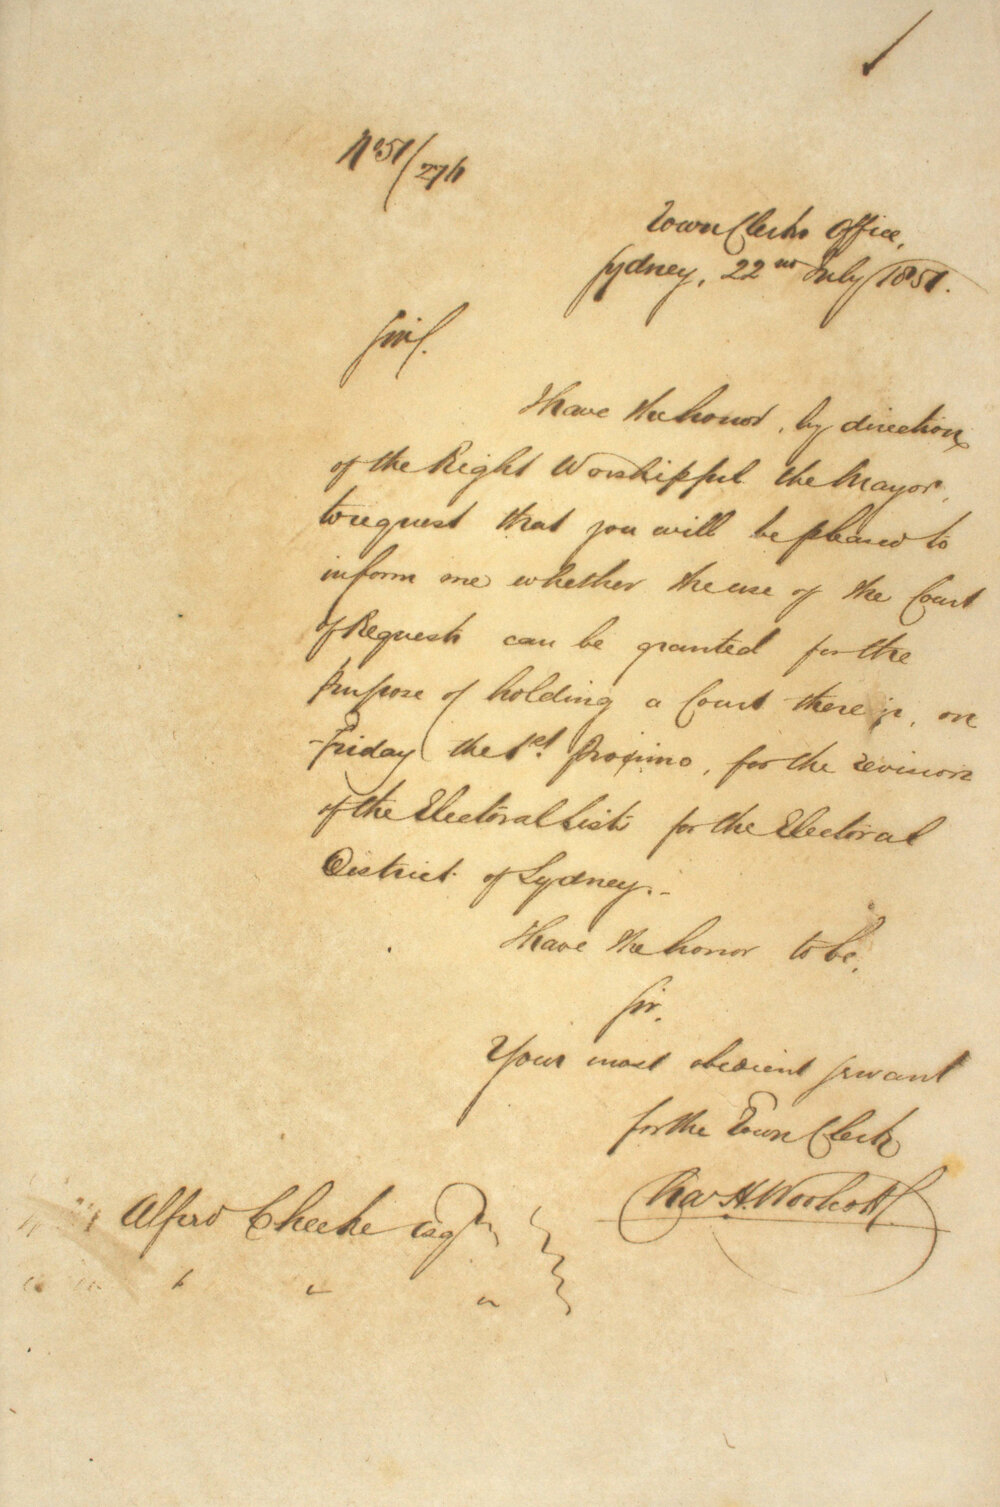 No 51/274
Town Clerks Office,
Sydney, 22nd July 1851.
Sir,
I have the honor, by direction
of the Right Worshipful the Mayor,
to request that you will be pleased to
inform me whether the use of the Court
of Requests can be granted for the
purpose of holding a Court therein, on
Friday the 1st Proximo, for the revision
of the Electoral Lists for the Electoral
District of Sydney.-
I have the honor to be,
Sir,
Your most obedient servant
for the Town Clerk
Chas H. Woolcott
Alfred Cheeke Esqr
" " "